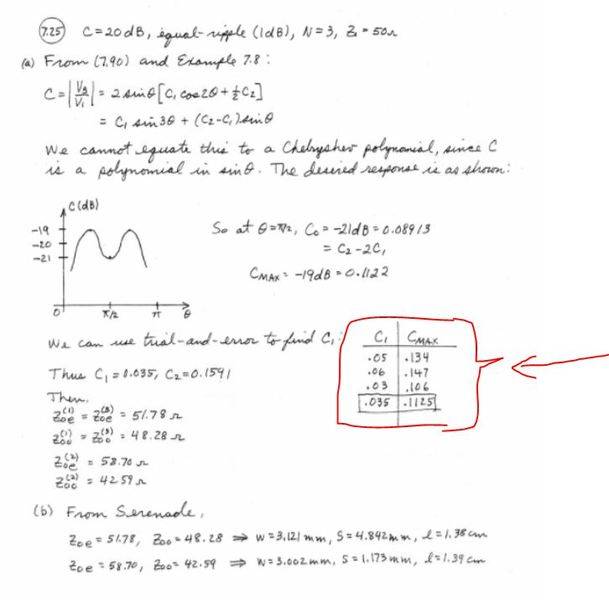 7.25 C=20dB, equal-ripple (1dB), N=3, Z₀=50Ω
(a) From (7.90) and Example 7.8:
C=|V₃/V₁| = 2 sinθ[C₁ cos2θ+½C₂]
= C₁ sin3θ + (C₂-C₁) sinθ
We cannot equate this to a Chebyshev polynomial, since C
is a polynomial in sinθ. The desired response is as shown:
C(dB)
-19
-20
-21
0 π/2 π θ
So at θ=π/2, C₀ = -21dB = 0.08913
= C₂-2C₁
CMAX = -19dB = 0.1122
We can use trial-and-error to find C₁:
C₁ CMAX
.05 .134
.06 .147
.03 .106
.035 .1125
Thus C₁=0.035, C₂=0.1591
Then,
Z₀e⁽¹⁾ = Z₀e⁽³⁾ = 51.78 Ω
Z₀o⁽¹⁾ = Z₀o⁽³⁾ = 48.28 Ω
Z₀e⁽²⁾ = 58.70 Ω
Z₀o⁽²⁾ = 42.59 Ω
(b) From Serenade,
Z₀e = 51.78, Z₀o = 48.28 ⇒ W=3.121 mm, S=4.842 mm, ℓ=1.38 cm
Z₀e = 58.70, Z₀o = 42.59 ⇒ W=3.002 mm, S=1.173 mm, ℓ=1.39 cm